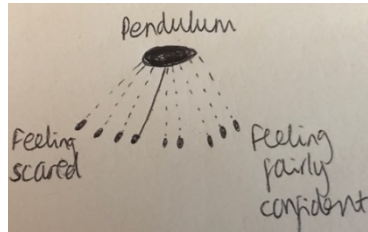 Pendulum
Feeling
scared
Feeling
fairly
confident